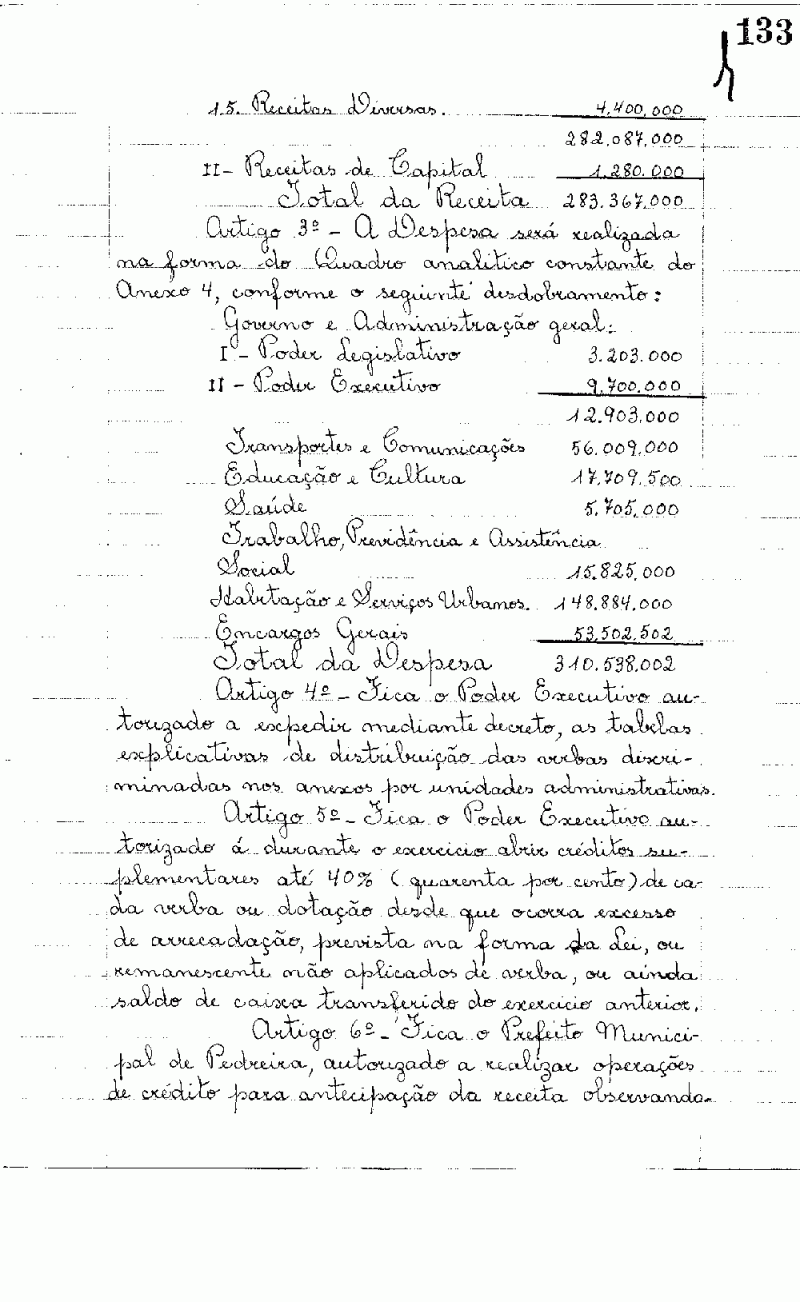 133
1.5. Receitas Diversas. 4.400.000
282.087.000
II - Receitas de Capital 1.280.000
Total da Receita 283.367.000
Artigo 3º - A Despesa será realizada
na forma do Quadro analitico constante do
Anexo 4, conforme o seguinte desdobramento:
Governo e Administração geral:
I - Poder Legislativo 3.203.000
II - Poder Executivo 9.700.000
12.903.000
Transportes e Comunicações 56.009.000
Educação e Cultura 17.709.500
Saúde 5.705.000
Trabalho, Previdência e Assistência
Social 15.825.000
Habitação e Serviços Urbanos. 148.884.000
Encargos Gerais 53.502.502
Total da Despesa 310.538.002
Artigo 4º - Fica o Poder Executivo au-
torizado a expedir mediante decreto, as tabelas
explicativas de distribuição das verbas discri-
minadas nos anexos por unidades administrativas.
Artigo 5º - Fica o Poder Executivo au-
torizado á durante o exercicio abrir créditos su-
plementares até 40% (quarenta por cento) de ca-
da verba ou dotação desde que ocorra excesso
de arrecadação, prevista na forma da Lei, ou
remanescente não aplicados de verba, ou ainda
saldo de caixa transferido do exercicio anterior.
Artigo 6º - Fica o Prefeito Munici-
pal de Pedreira, autorizado a realizar operações
de crédito para antecipação da receita observando-